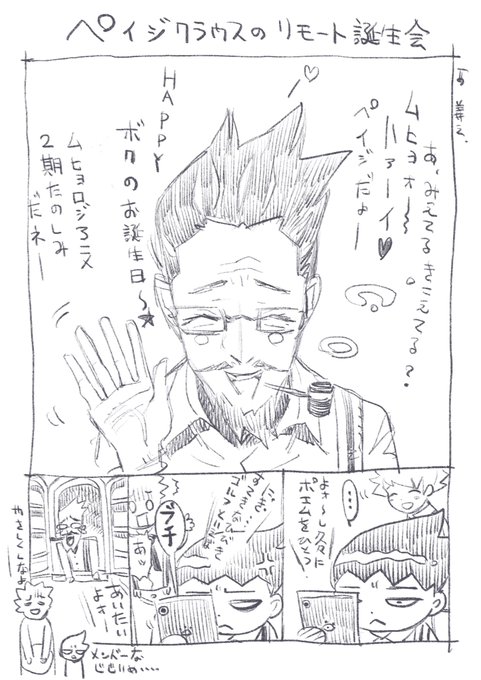 ペイジクラウスのリモート誕生会
あ、みえてるきこえてる?
ムヒョォ~~
ハァーイ♥
ペイジだよー
HAPPY
ボクのお誕生日~★
ムヒョロジアニメ
2期たのしみ
だネー
よォ~し久々に
ポエムをひとつ
・・・
プチ
あ
あいたい
よォー
やさしくしなよ
メンドーな
じじいめ・・・・